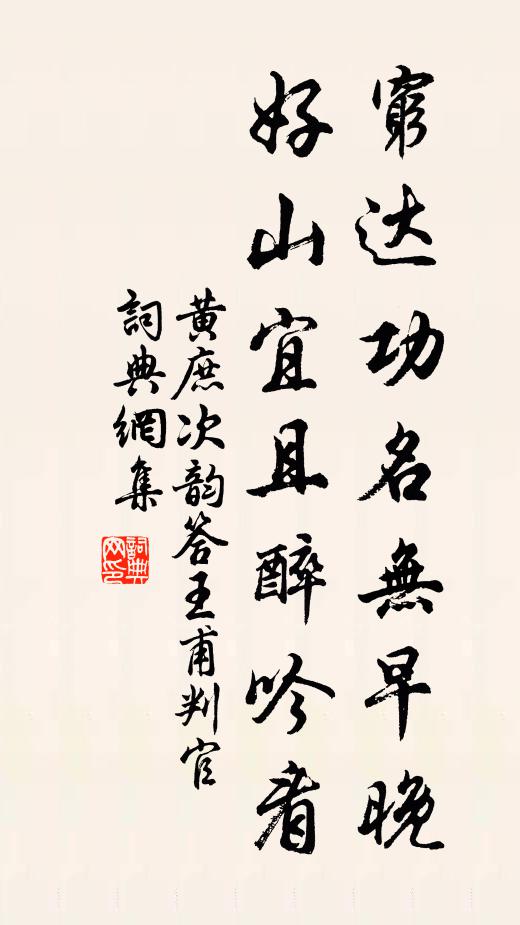 窮达功名無早晚
好山宜且醉吟看
黄庶次韵答王甫判官
詞典網集
詞典网印